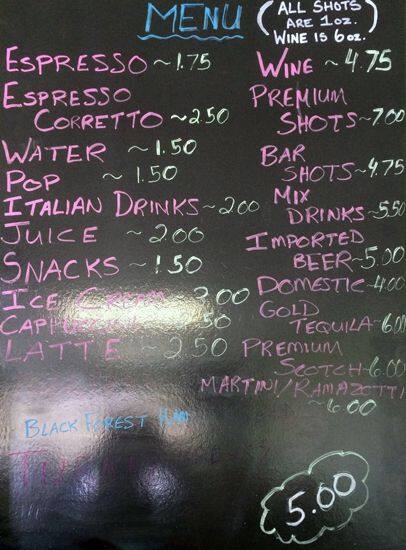 MENU
(ALL SHOTS
ARE 1oz.
WINE IS 6oz.)
ESPRESSO ~1.75
ESPRESSO
CORRETTO ~2.50
WATER ~ 1.50
POP ~ 1.50
ITALIAN DRINKS ~ 2.00
JUICE ~ 2.00
SNACKS ~ 1.50
ICE CREAM 3.00
CAPPUCCINO 50
LATTE ~ 2.50
WINE ~ 4.75
PREMIUM
SHOTS ~7.00
BAR
SHOTS ~4.75
MIX
DRINKS ~5.50
IMPORTED
BEER ~5.00
DOMESTIC ~4.00
GOLD
TEQUILA ~6.00
PREMIUM
SCOTCH ~6.00
MARTINI/RAMAZOTTI
~6.00
BLACK FOREST HAM
5.00